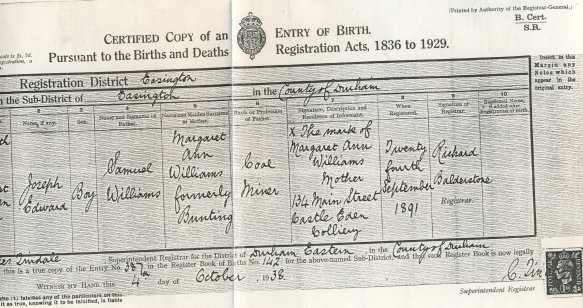 (Printed by Authority of the Registrar-General.)
B. Cert.
S.R.
CERTIFIED COPY of an ENTRY OF BIRTH.
Pursuant to the Births and Deaths Registration Acts, 1836 to 1929.
Registration District Easington
in the Sub-District of Easington in the County of Durham
Insert in this
Margin any
Notes which
appear in the
original entry.
2 3 4 5 6 7 8 9 10
Name, if any. Sex. Name and Surname of Father. Name and Maiden Surname of Mother. Rank or Profession of Father. Signature, Description and Residence of Informant. When Registered. Signature of Registrar.
Joseph
Edward
Boy
Samuel
Williams
Margaret
Ann
Williams
formerly
Bunting
Coal
Miner
X The mark of
Margaret Ann
Williams
Mother
134 Main Street
Castle Eden
Colliery
Twenty
fourth
September
1891
Richard
Balderstone
Registrar.
Superintendent Registrar for the District of Durham Eastern, in the County of Durham
this is a true copy of the Entry No. 387 in the Register Book of Births No. 142 for the above-named Sub-District, and that such Register Book is now legally
WITNESS MY HAND this 4th day of October, 1938.
Superintendent Registrar
(1) falsifies any of the particulars on this
it as true, knowing it to be falsified, is liable